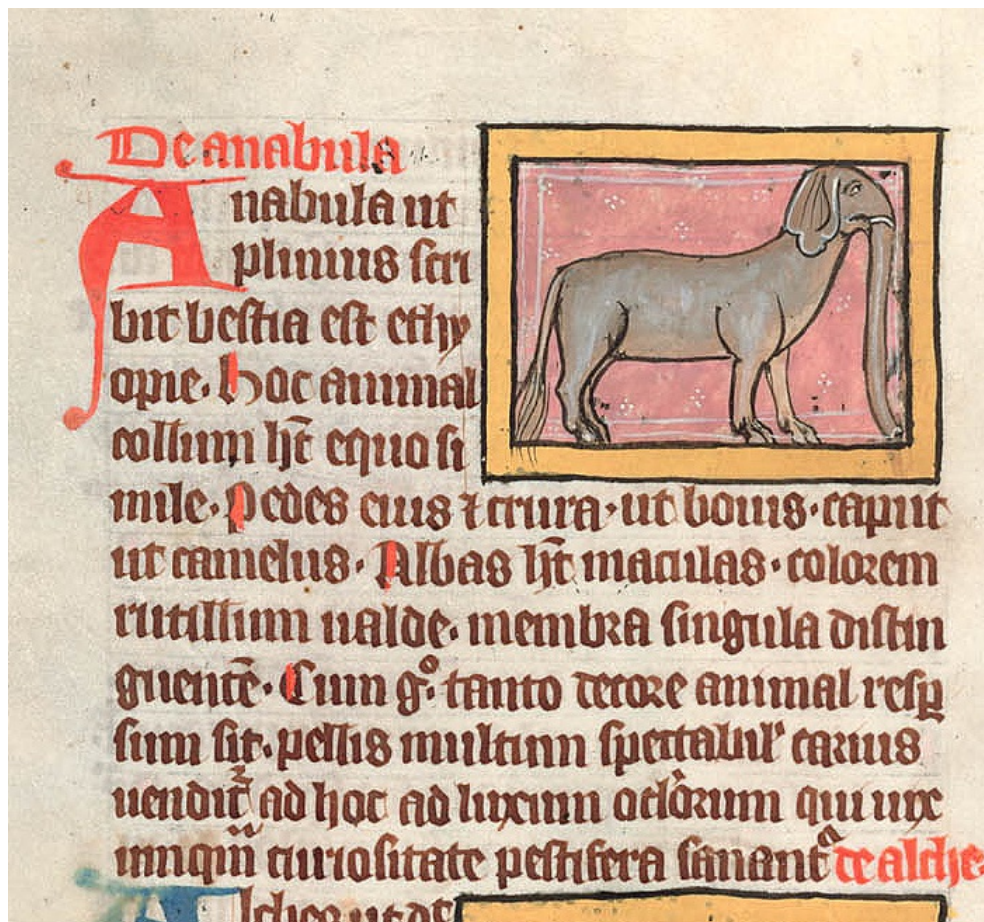 De anabula
Anabula ut
plinius scri
bit bestia est ethy
opie. hoc animal
collum ht̄ equo si
mile. Pedes eius ⁊ crura. ut bouis. caput
ut camelus. Albas ht̄ maculas. colorem
rutillium ualde. membra singula distin
guentē. Cum gͦ. tanto decore animal resꝑ
sum sit. pellis multum spectabil' carius
uendit᷑ ad hoc ad luxum oclōrum qui uix
umqͣm curiositate pestifera sanant᷑ de alche